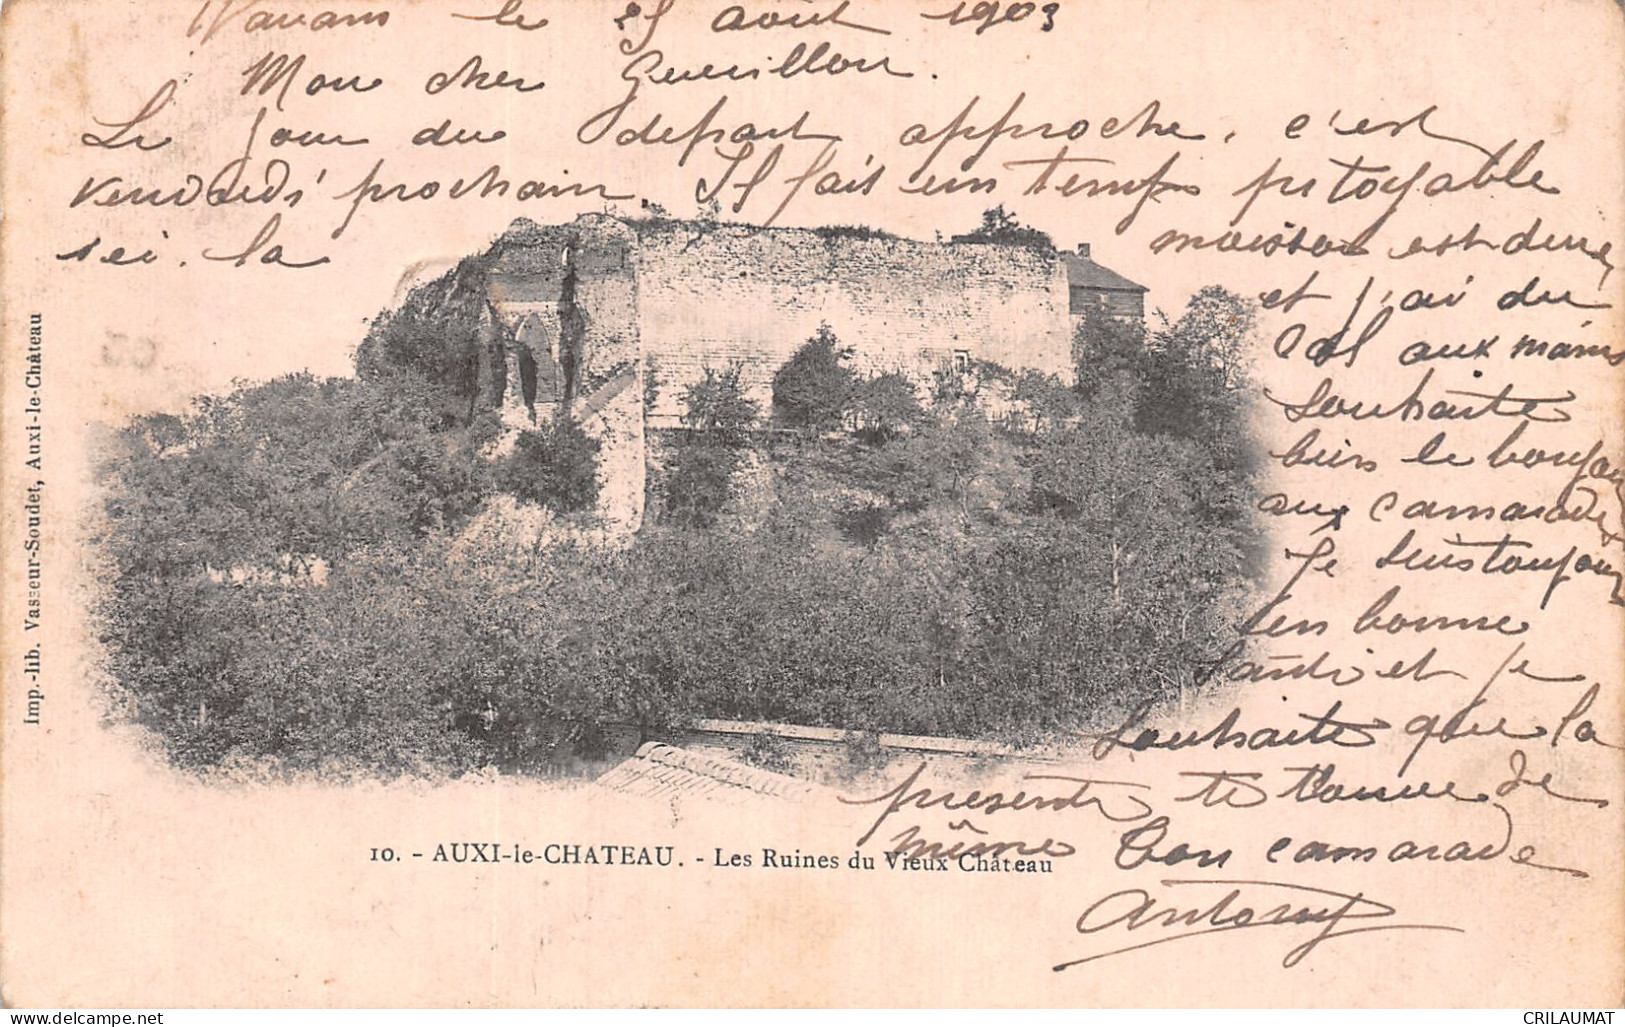 Wavans le 25 août 1903
Mon cher Guerillon.
Le jour du depart approche, c'est
vendredi prochain. Il fait un temps pitoyable
ici. la moisson est dure
et j'ai du
cal aux mains
souhaite
bien le bonjour
aux camarades
Je suis toujours
en bonne
santé et je
souhaite que la
presente te trouve de
même Bon camarade
Antony
10. - AUXI-le-CHATEAU. - Les Ruines du Vieux Château
Imp.-lib. Vasseur-Soudet, Auxi-le-Château
CRILAUMAT